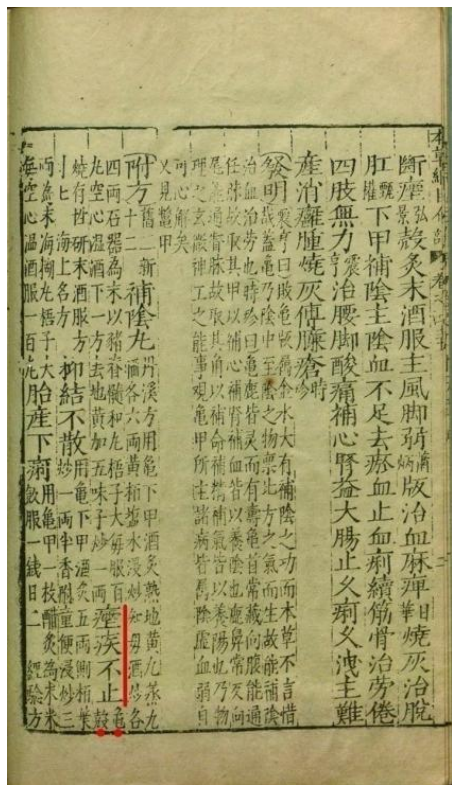 本草綱目
斷瘧弘景殼炙末酒服主風脚弱蕭炳版治血麻痺日華燒灰治脫
肛甄權下甲補陰主陰血不足去瘀血止血痢續筋骨治勞倦
四肢無力震亨治腰脚酸痛補心腎益大腸止久痢久洩主難
產消癰腫燒灰傅臁瘡時珍
發明震亨曰敗龜版屬金水大有補陰之功而本草不言惜
哉蓋龜乃陰中至陰之物稟北方之氣而生故能補陰
治血治勞也時珍曰龜鹿皆靈而有壽龜首常藏向腹能通
任脉故取其甲以補心補腎補血皆以養陰也鹿鼻常反向
尾能通督脉故取其角以補命補精補氣皆以養陽也乃物
理之玄微神工之能事觀龜甲所主諸病皆屬陰虛血弱自
可心解矣
又見鱉甲
附方舊二新十二補陰丸丹溪方用龜下甲酒炙熟地黃九蒸九
酒各六兩黃栢鹽水浸炒知母酒炒各
四兩石器為末以豬脊髓和丸梧子大每服百
丸空心溫酒下一方去地黃加五味子炒一兩瘧疾不止龜殼
燒存性研末酒服方
寸匕海上名方抑結不散用龜下甲酒炙五兩側栢葉
炒一兩半香附童便浸炒三
兩為末米糊丸梧子大
每空心溫酒服一百丸胎產下痢用龜甲一枚醋炙為末米
飲服一錢日二經驗方